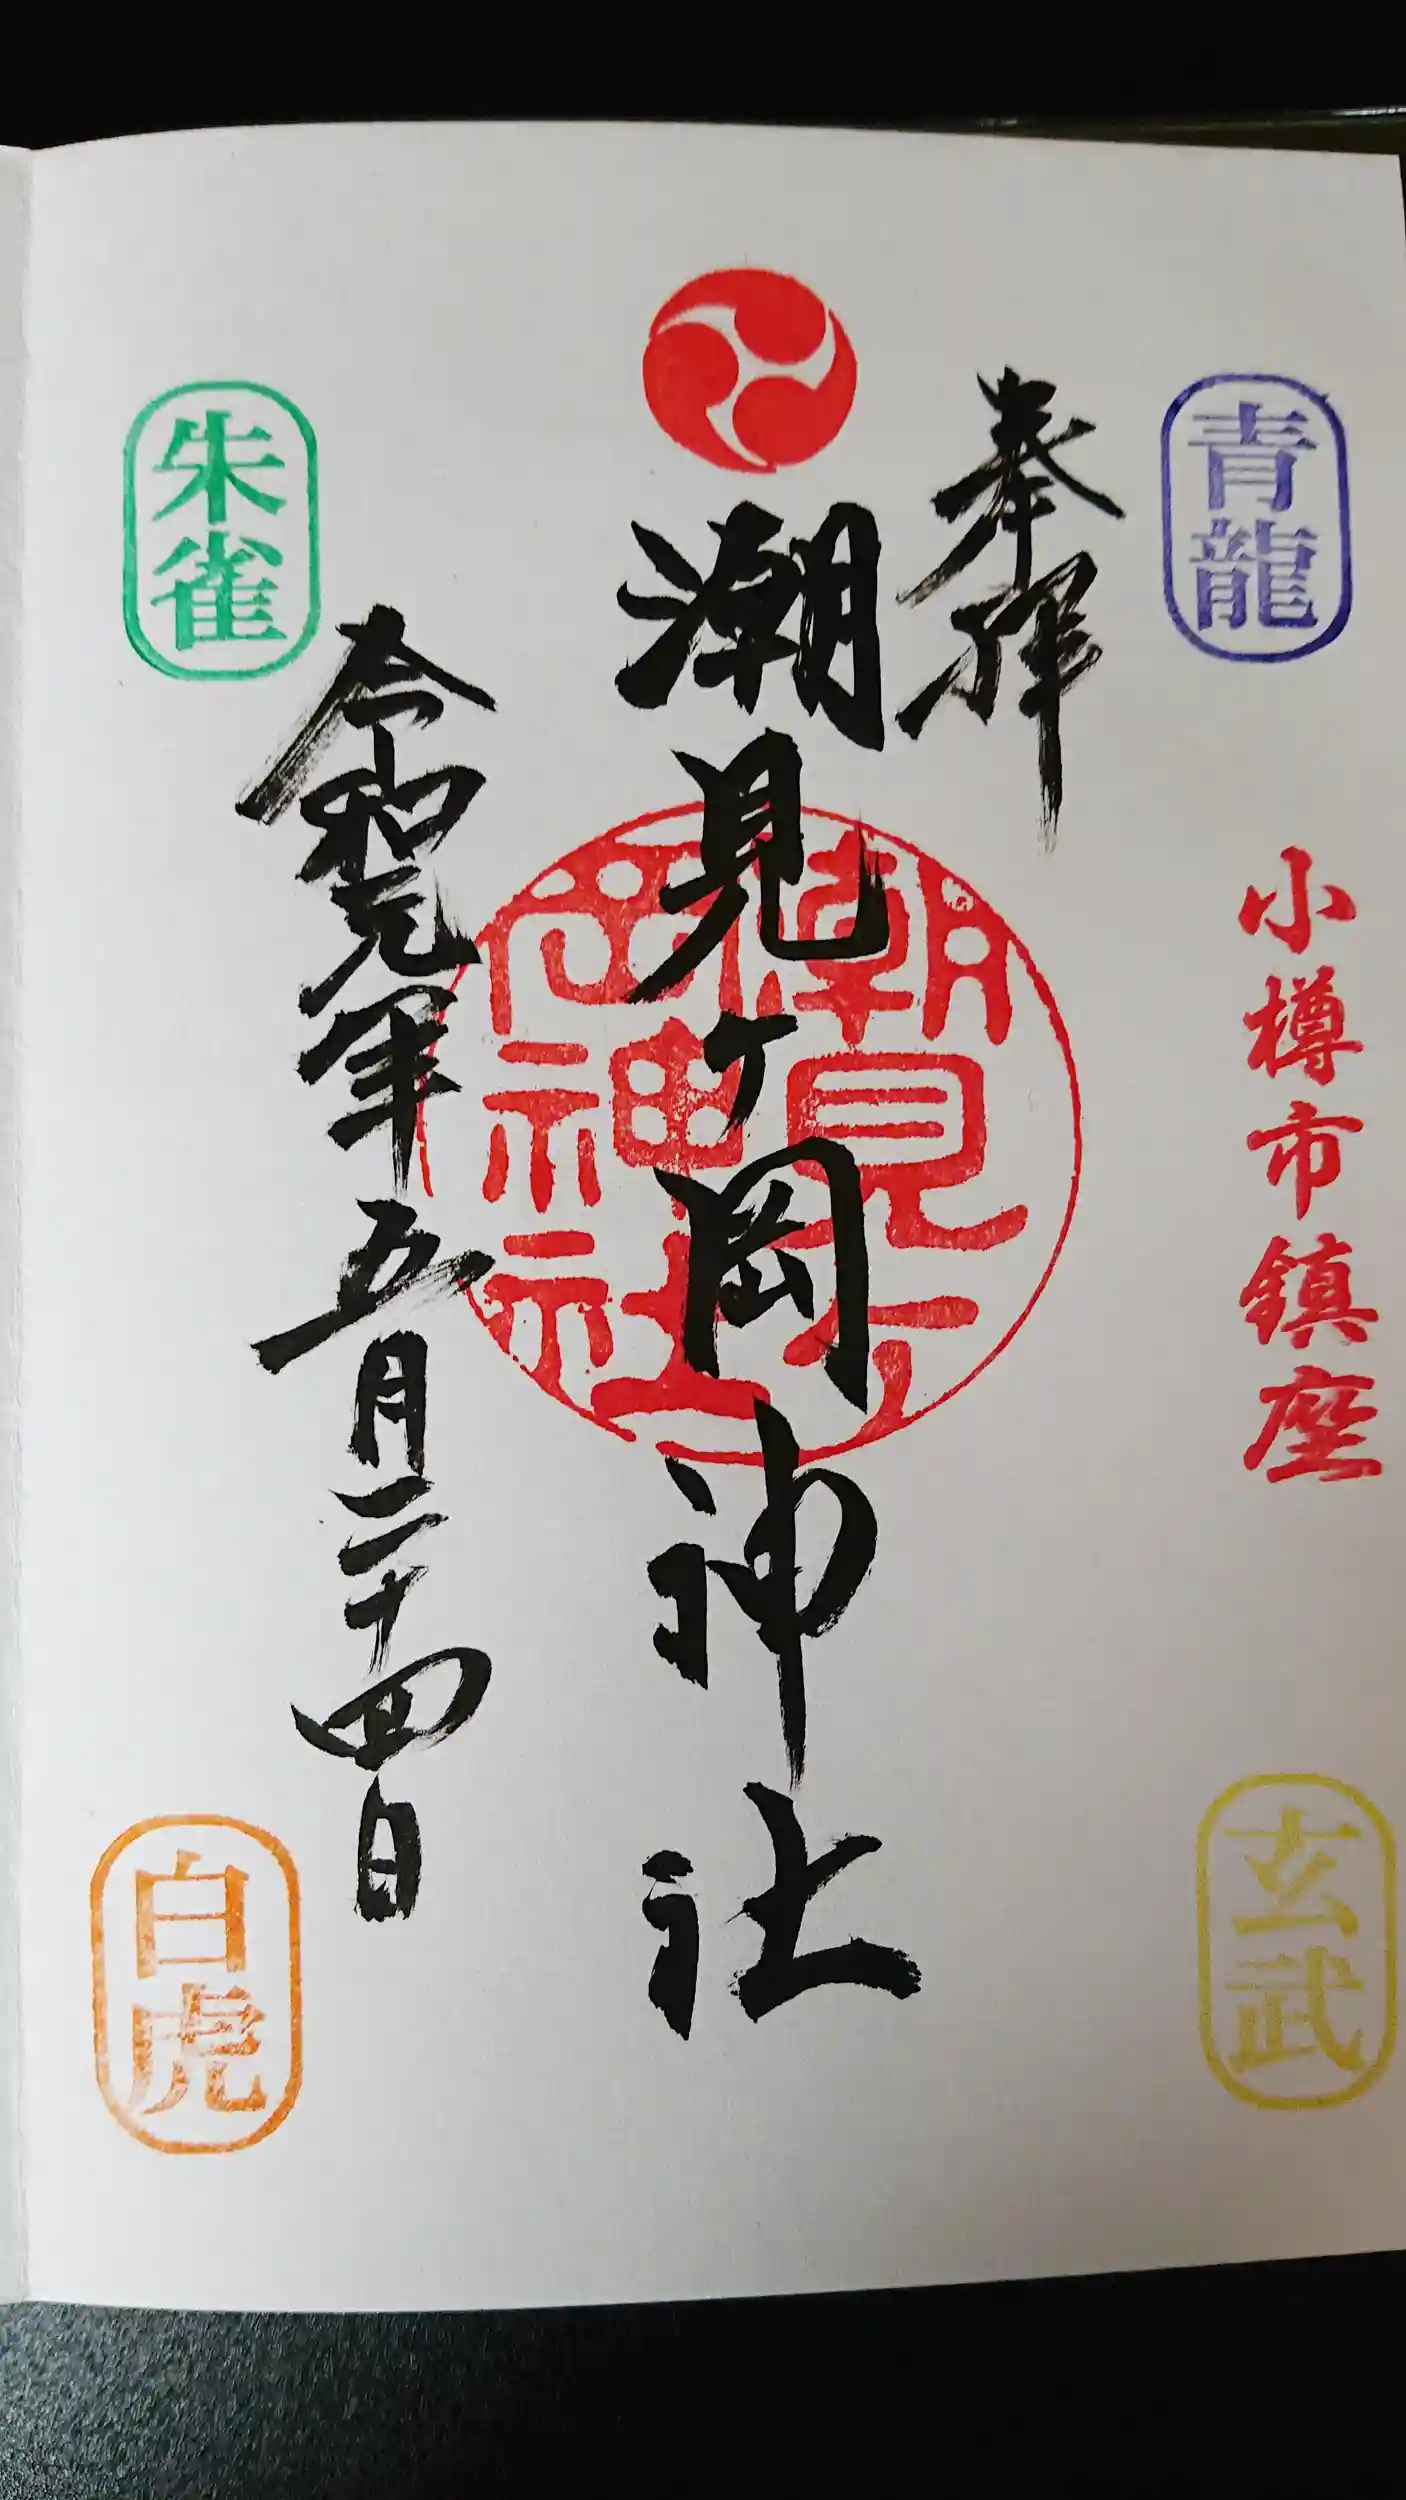 青龍
奉拝
小樽市鎮座
玄武
潮見ヶ岡神社
潮見ヶ岡神社
朱雀
令和元年五月二十四日
白虎